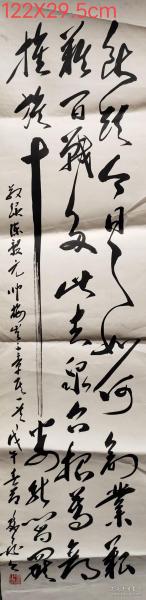 122X29.5cm
断头今日意如何创业艰
难百战多此去泉台招旧部
旌旗十万斩阎罗
敬录陈毅元帅梅岭三章之一
戊午